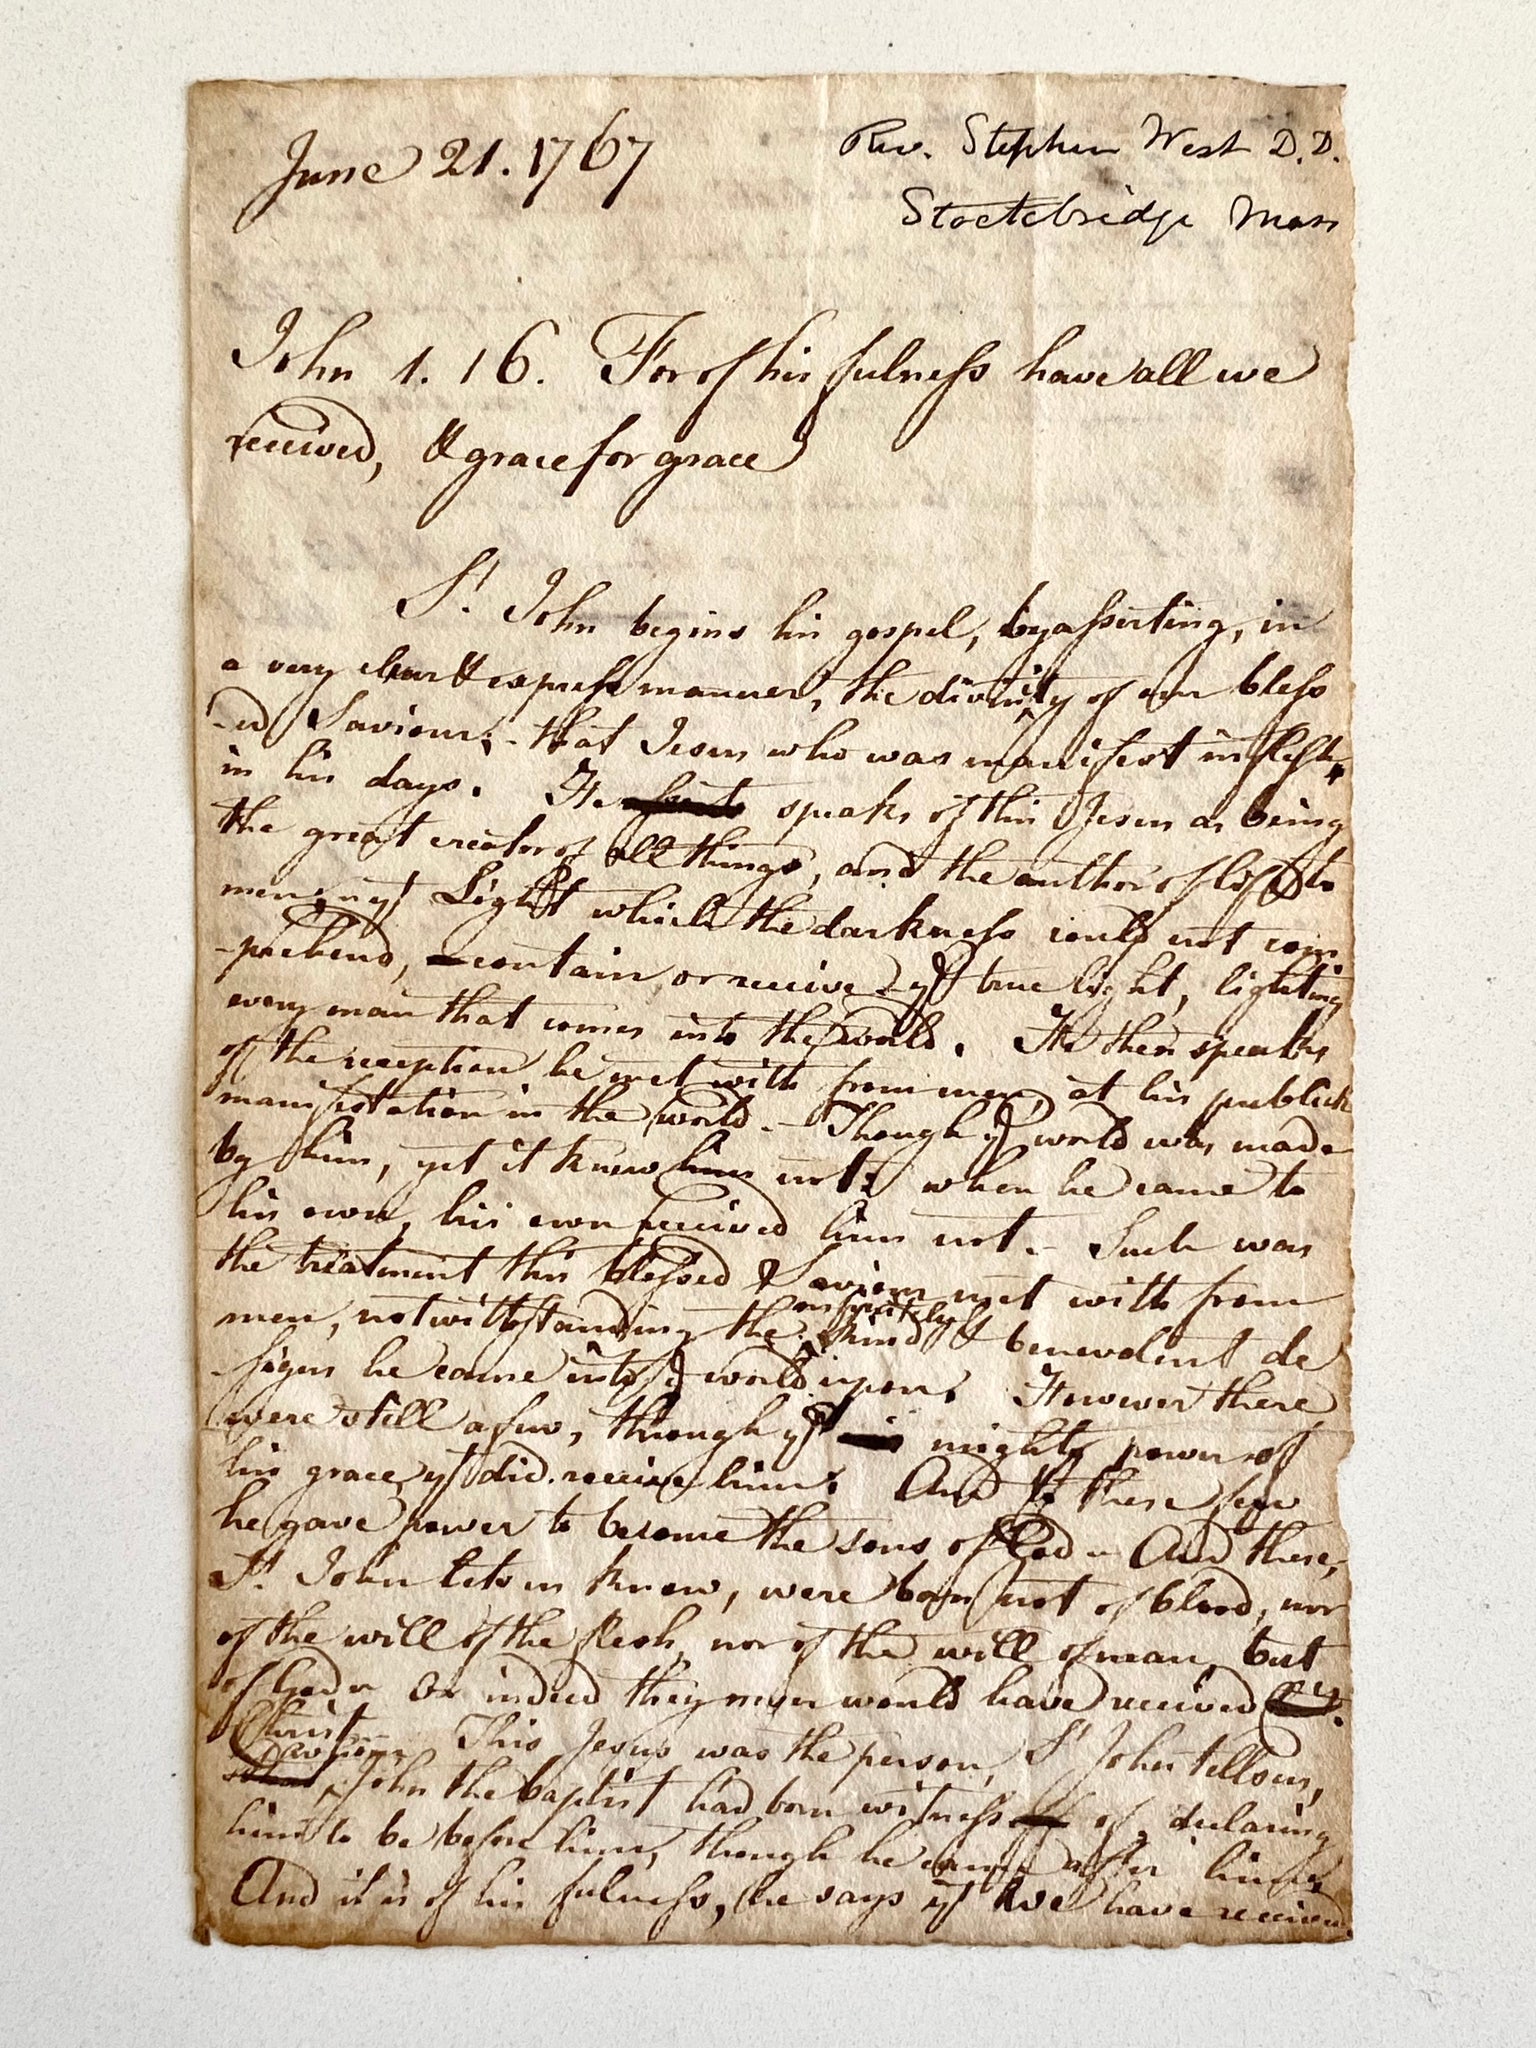 June 21. 1767
Rev. Stephen West D.D.
Stockbridge Mass
John 1. 16. For of his fulness have all we
received, & grace for grace
St. John begins his gospel, by asserting, in
a very clear & express manner, the divinity of our bless
-ed Saviour; - that Jesus who was manifest in flesh
in his days. He speaks of this Jesus as being
the great creator of all things, and the author of life to
men; yt Light which the darkness could not com
-prehend, contain, or receive; yt true light, lighting
every man that comes into the world. He then speaks
of the reception he met with from men, at his publick
manifestation in the world. - Though ye world was made
by him, yet it knew him not: when he came to
his own, his own received him not. - Such was
the treatment this blessed Saviour met with from
men, notwithstanding the infinitely kind & benevolent de
-signs he came into ye world upon. However there
were still a few, through ye mighty power of
his grace, yt did receive him: And to these few
he gave power to become the sons of God - And these,
St. John lets us know, were born not of blood, nor
of the will of the flesh, nor of the will of man, but
of God - Or indeed they never would have received
Christ - This Jesus was the person, St John tells us,
John the baptist had born witness of, declaring
him to be before him, though he came after him;
And it is of his fulness, he says yt we have received